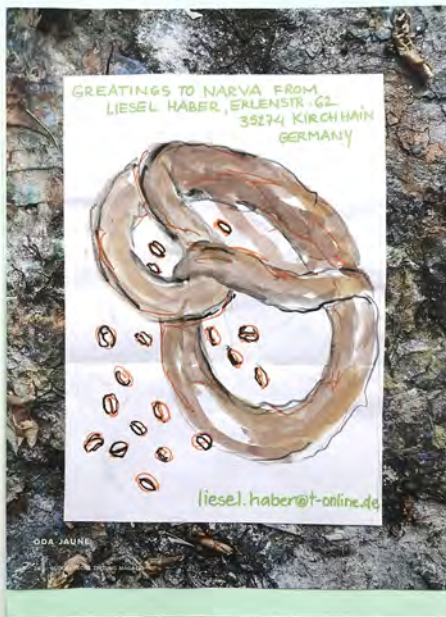 GREATINGS TO NARVA FROM
LIESEL HABER, ERLENSTR. 62
35274 KIRCHHAIN
GERMANY
liesel.haber@t-online.de
ODA JAUNE